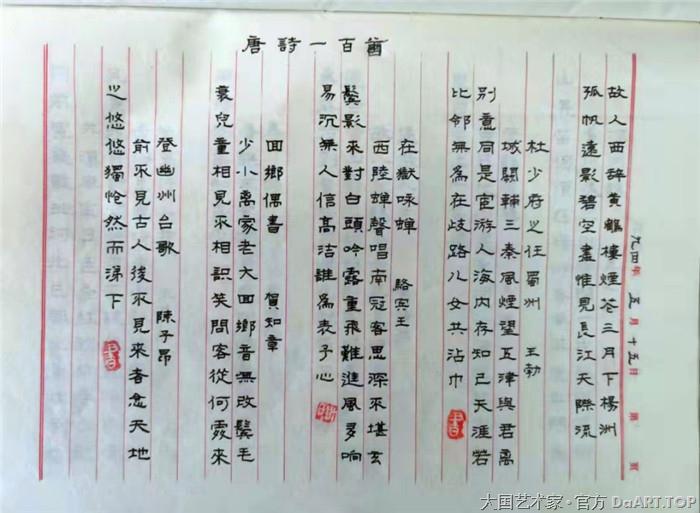 唐詩一百首
九四年 五月十五日 第 頁
故人西辞黄鶴樓煙花三月下楊洲
孤帆遠影碧空盡惟見長江天際流
杜少府之任蜀州 王勃
城闕輔三秦風煙望五津與君离
别意同是宦游人海内存知己天涯若
比邻無為在歧路儿女共沾巾
在獄咏蝉 駱宾王
西陸蝉聲唱南冠客思深不堪玄
鬓影來對白頭吟露重飛難進風多响
易沉無人信高洁誰為表予心
回鄉偶書 賀知章
少小离家老大回鄉音無改鬓毛
衰兒童相見不相識笑問客從何處來
登幽州台歌 陳子昂
前不見古人後不見來者念天地
之悠悠獨怆然而涕下
大国艺术家·官方 DaART.TOP